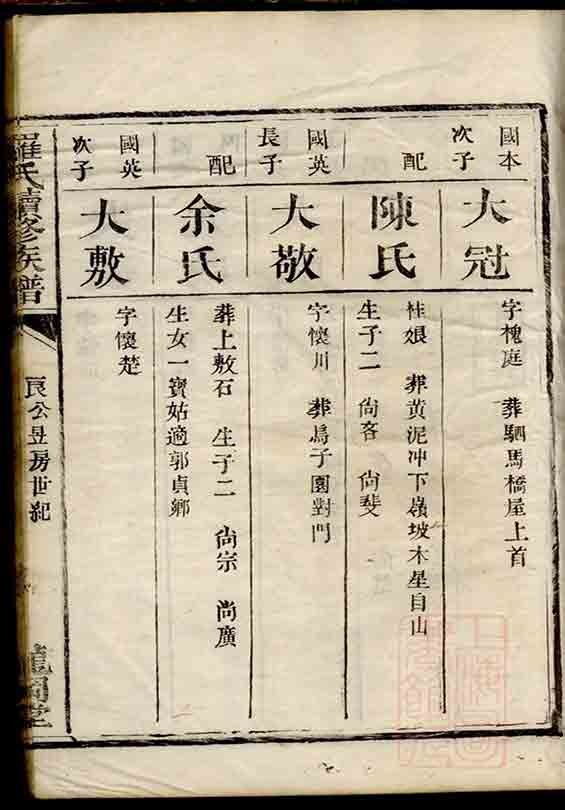 國本
次子
大冠
字槐庭 葬駟馬橋屋上首
配
陳氏
性娘 葬黃泥冲下嶺坡木星自山
生子二 尚客 尚斐
國英
長子
大敬
字懷川 葬烏子園對門
配
余氏
葬上敷石 生子二 尚宗 尚廣
生女一寶姑適郭貞鄉
國英
次子
大敷
字懷楚
羅氏續修族譜
良公昱房世紀